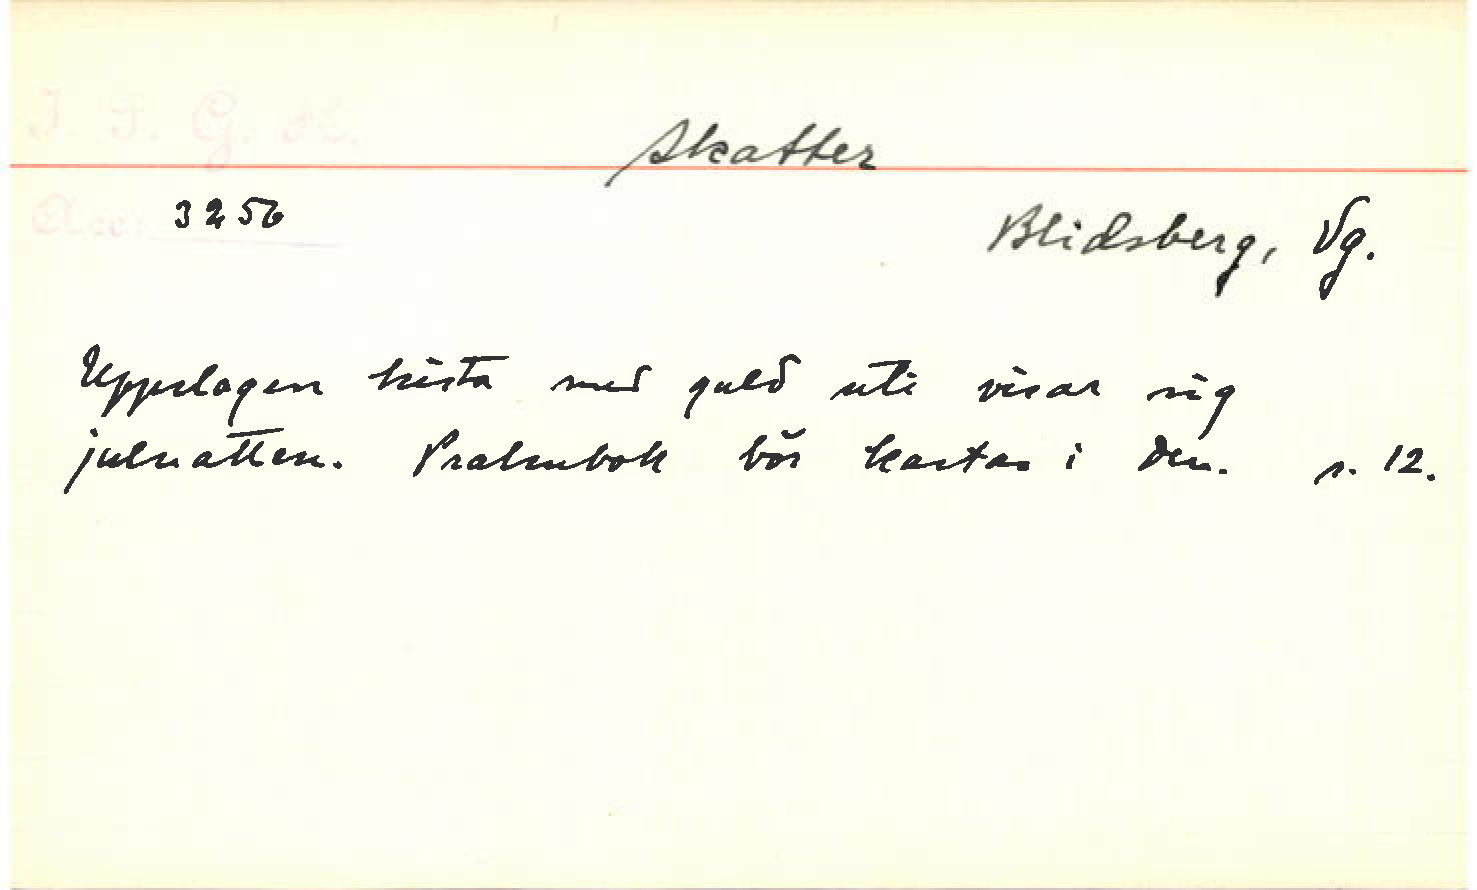 I. F. G. H.
Skatter
Acc. 3256
Blidsberg, Vg.
Uppslagen kista med guld uti visar sig
julnatten. Psalmbok bör kastas i den. s. 12.